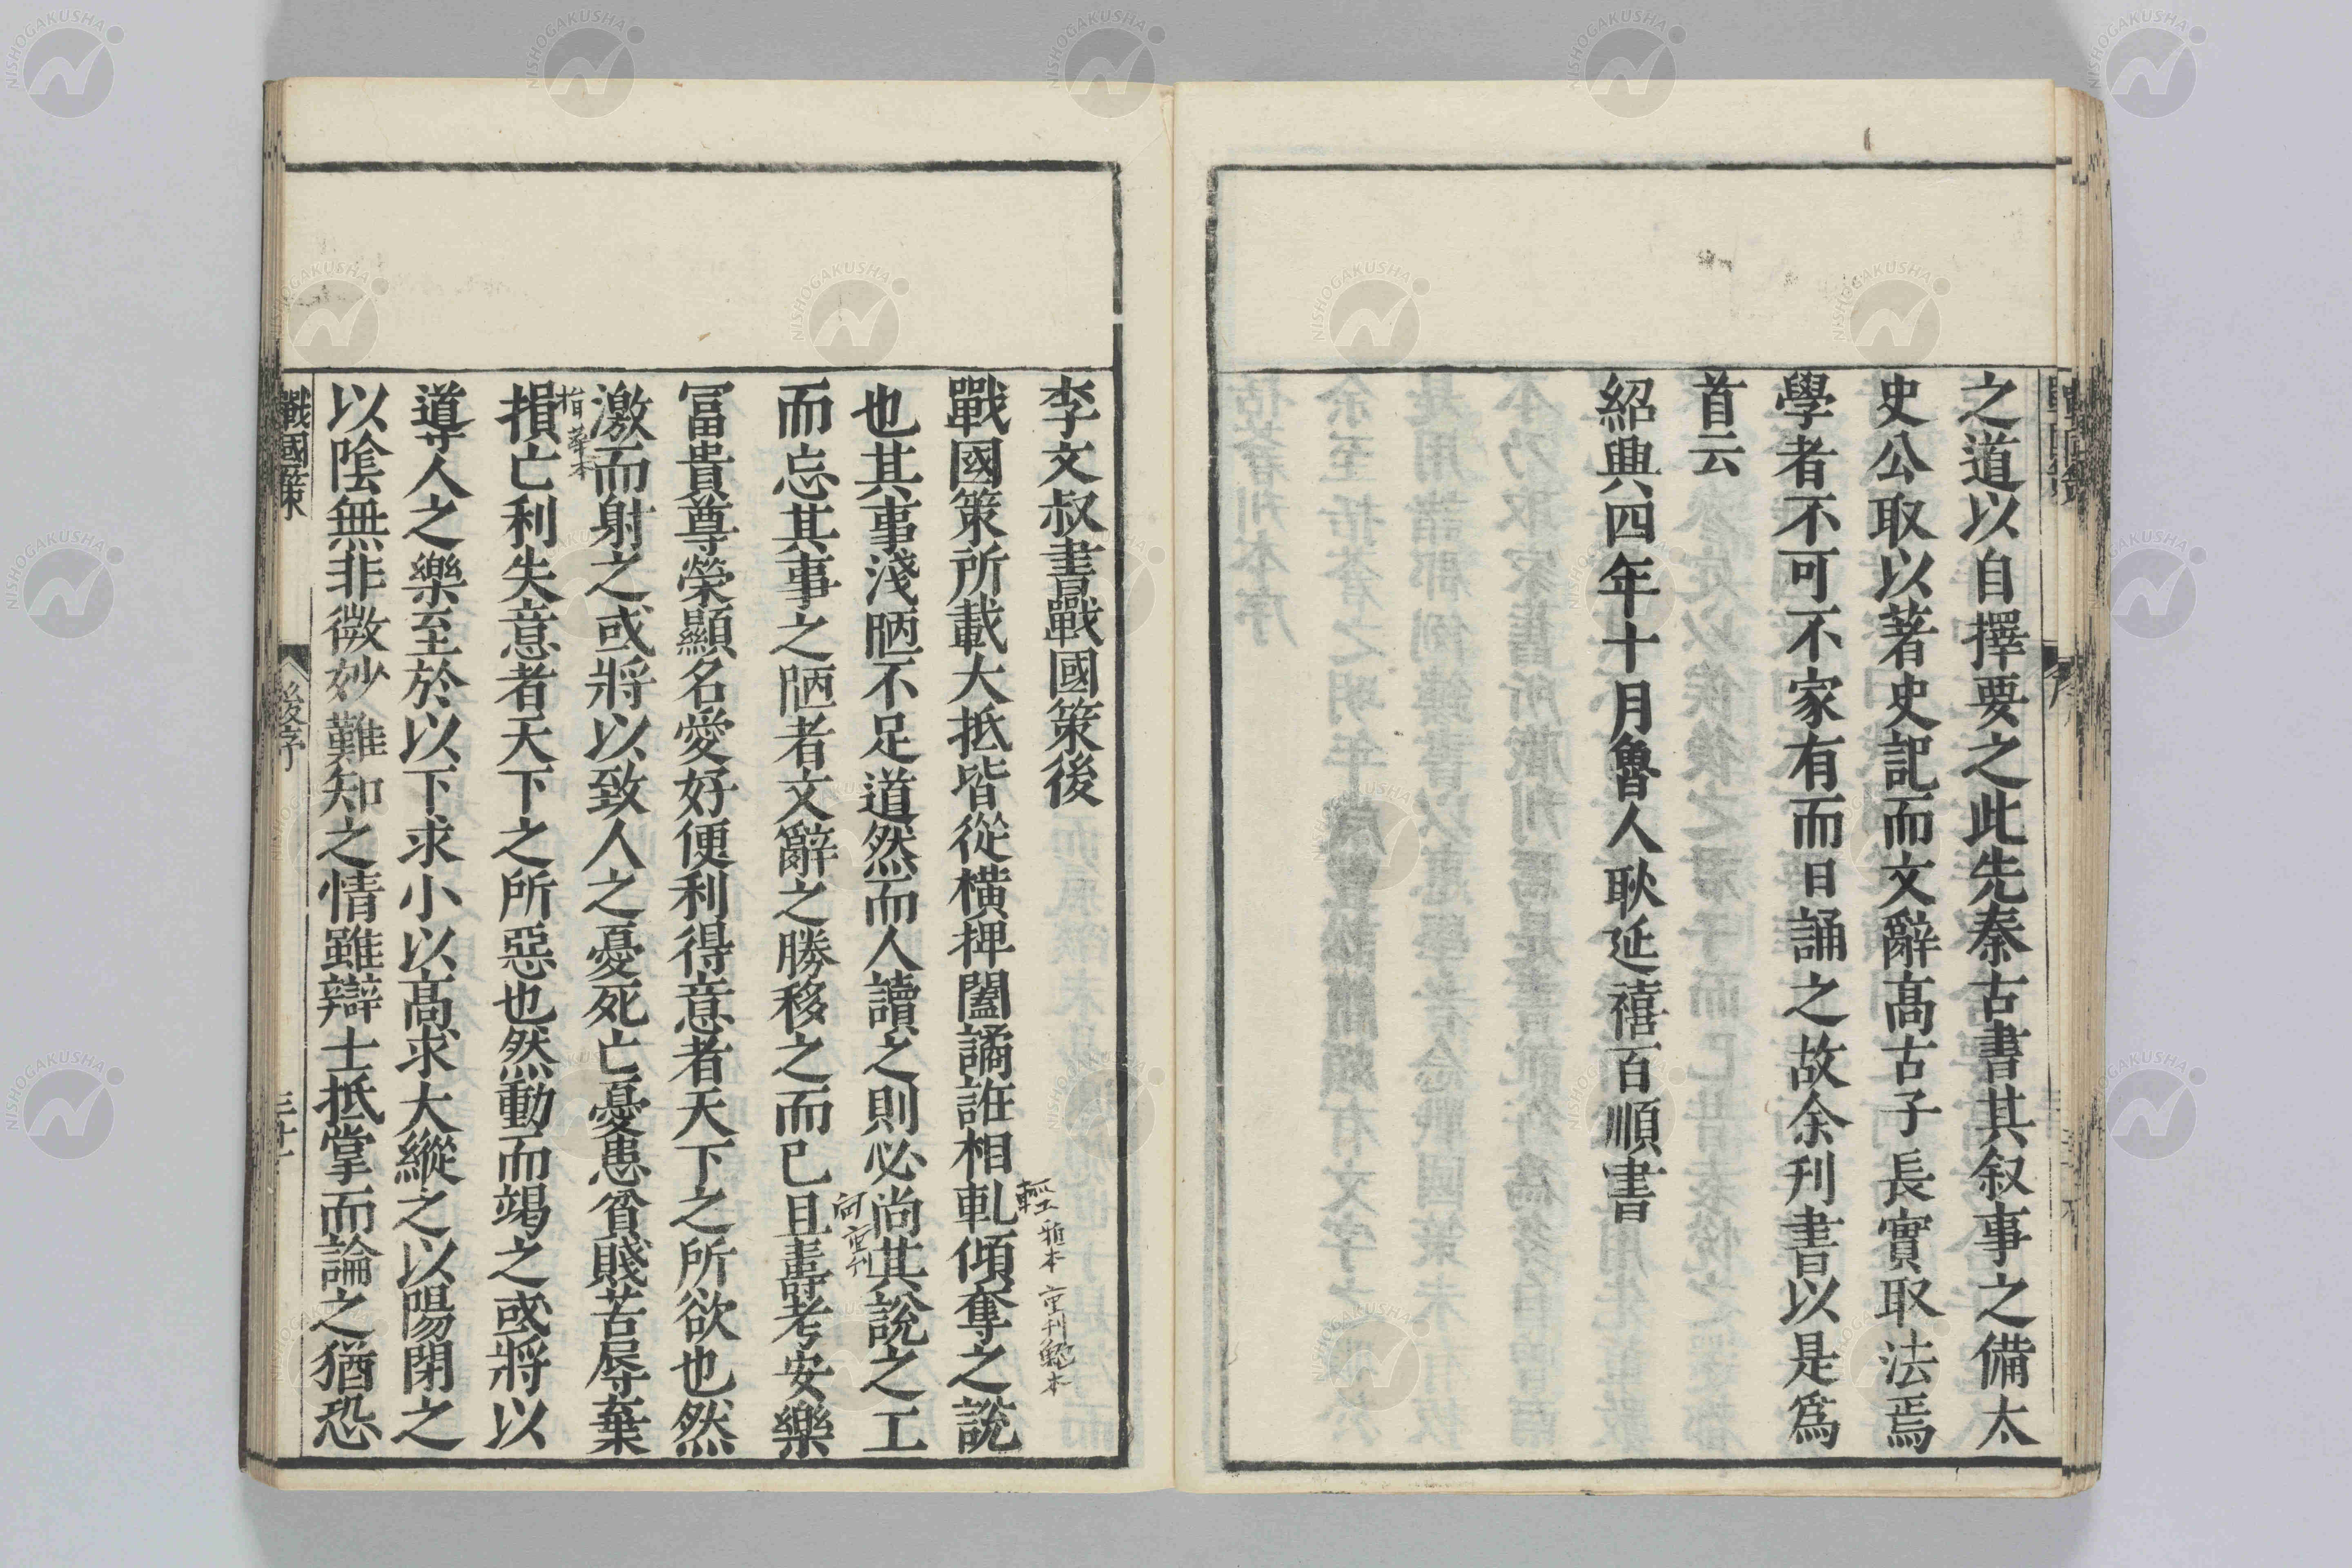 之道以自擇要之此先秦古書其叙事之備太
史公取以著史記而文辭高古子長實取法焉
學者不可不家有而日誦之故余刋書以是爲
首云
紹興四年十月魯人耿延禧百順書
李文叔書戰國策後
戰國策所載大抵皆從橫捭闔譎誑相軋傾奪之說
輕工 雅本 重刊鮑本
也其事淺陋不足道然而人讀之則必尚其說之工
向 重刋
而忘其事之陋者文辭之勝移之而已且壽考安樂
冨貴尊榮顯名愛好便利得意者天下之所欲也然
激而射之或將以致人之憂死亡憂患貧賤苦辱棄
損亡利失意者天下之所惡也然動而竭之或將以
道人之樂至於以下求小以高求大縱之以陽閉之
以陰無非微妙難知之情雖辯士抵掌而論之猶恐
戰國策
後序
NISHOGAKUSHA